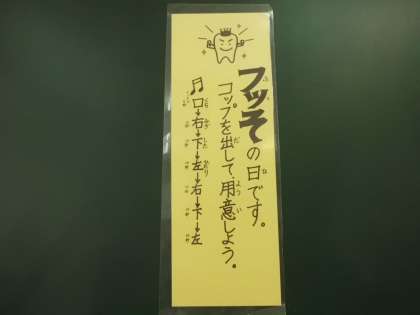 フッその日です。
コップを出して、用意しよう。
♬口→右→下→左→右→下→左